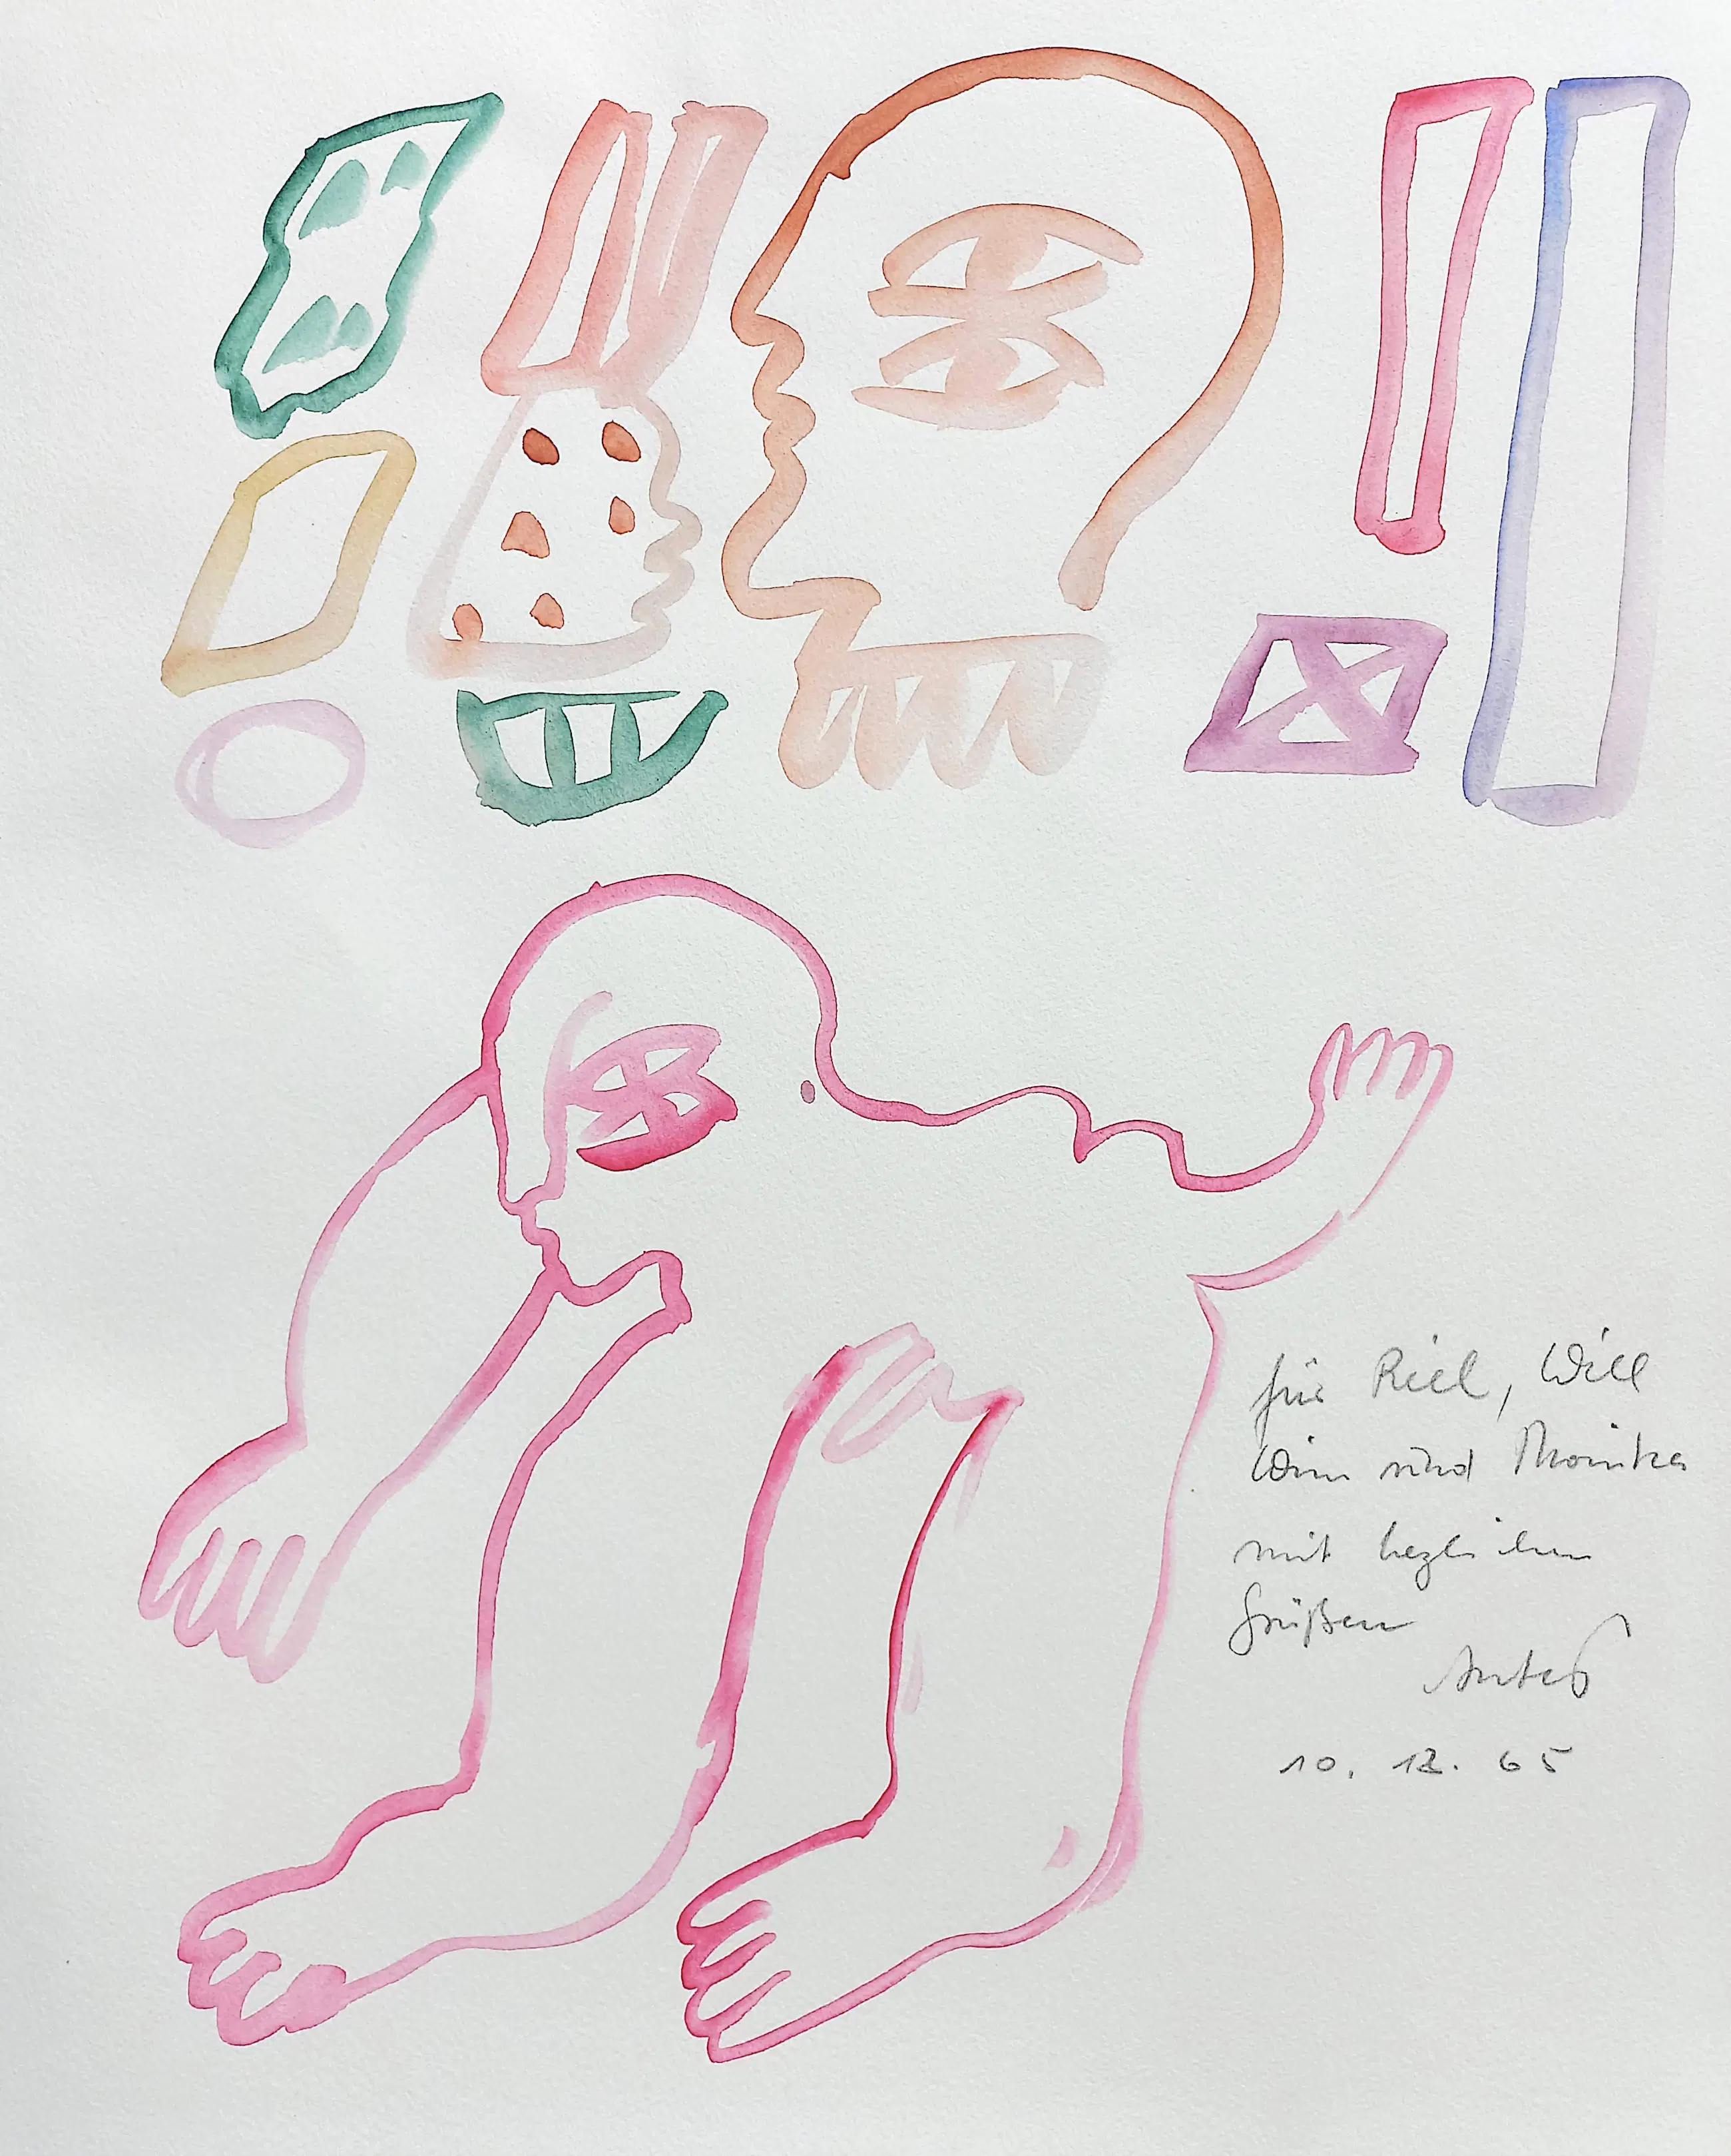 für Riel, Will
Wim und Monika
mit hezlichen
Grüßen
Antes
10. 12. 65